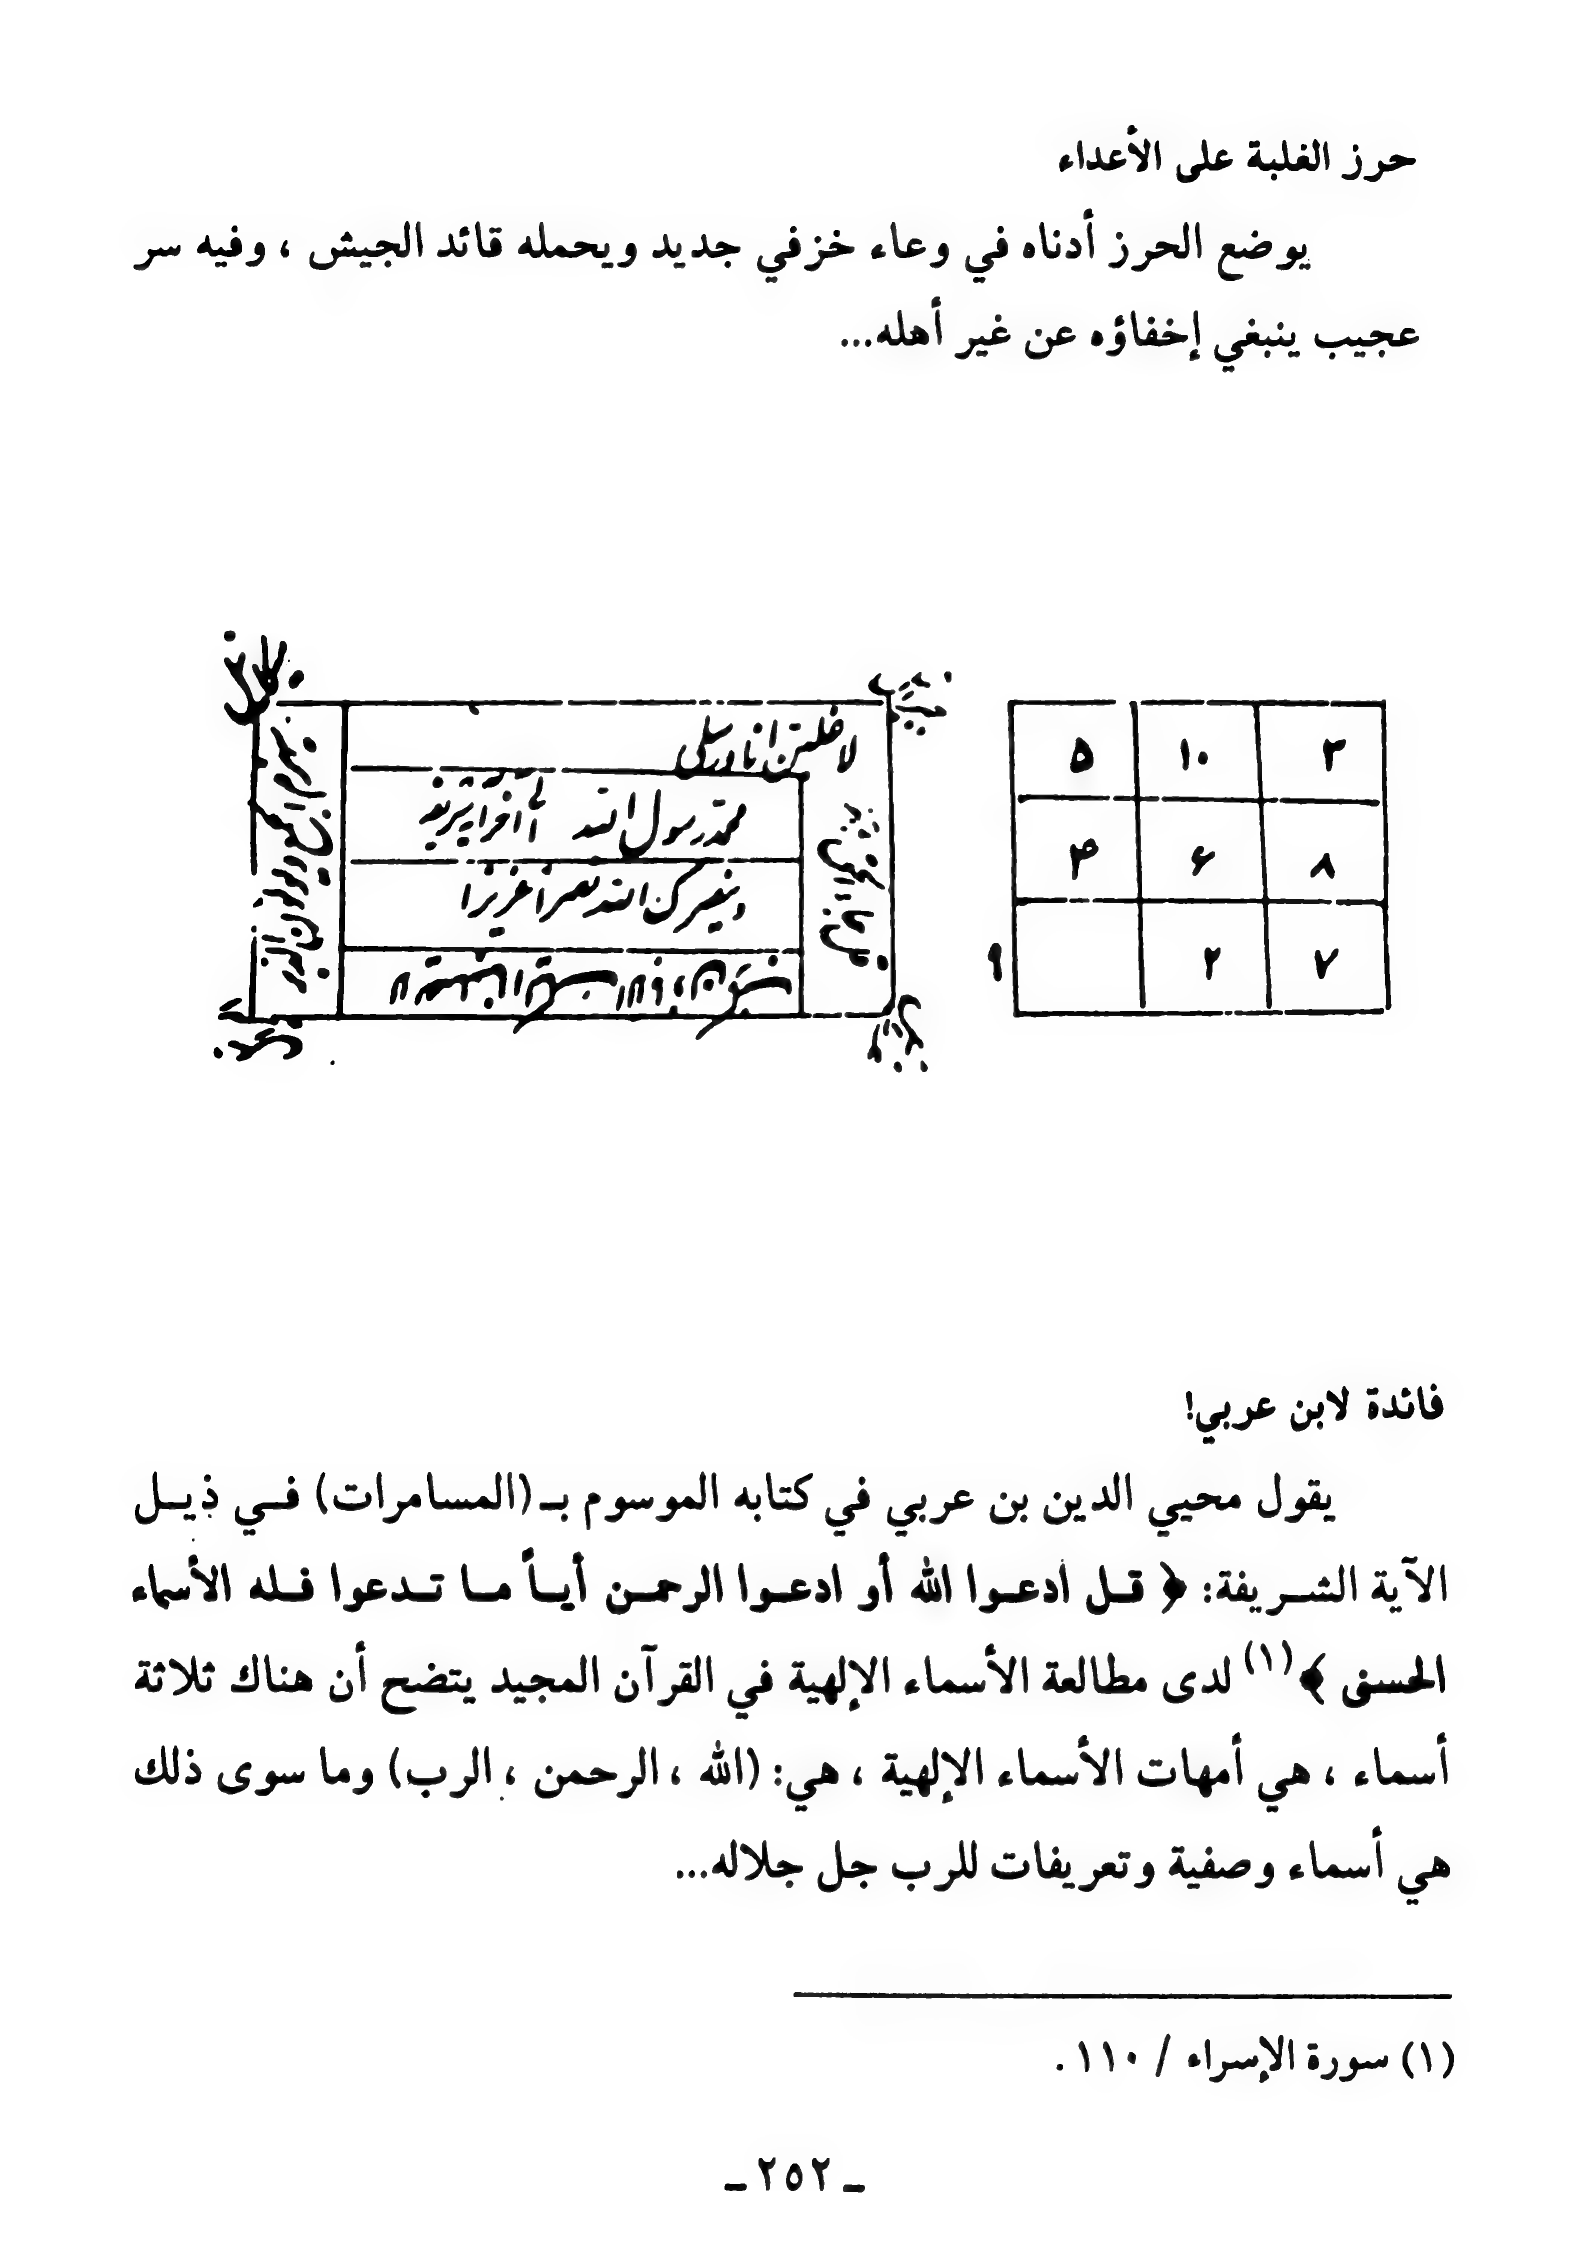 حرز الغلبة على الأعداء
يوضع الحرز أدناه في وعاء خزفي جديد ويحمله قائد الجيش ، وفيه سر
عجيب ينبغي إخفاؤه عن غير أهله...
٣ ١٠ ۵
٨ ۶ ۴
٧ ٢
٩
لاغلبن انا ورسلی
محمد رسول الله
وینصرک الله نصرا عزیزا
سیهزم الجمع ویولون الدبر
فائدة لابن عربي!
يقول محيي الدين بن عربي في كتابه الموسوم بـ (المسامرات) في ذيل
الآية الشريفة: ﴿ قل ادعوا الله أو ادعوا الرحمن أياً ما تدعوا فله الأسماء
الحسنى ﴾(١) لدى مطالعة الأسماء الإلهية في القرآن المجيد يتضح أن هناك ثلاثة
أسماء ، هي أمهات الأسماء الإلهية ، هي: (الله ، الرحمن ، الرب) وما سوى ذلك
هي أسماء وصفية وتعريفات للرب جل جلاله...
(١) سورة الإسراء / ١١٠ .
ـ ٢٥٢ ـ